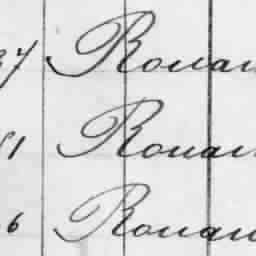 37 Rouan
51 Rouan
6 Rouan